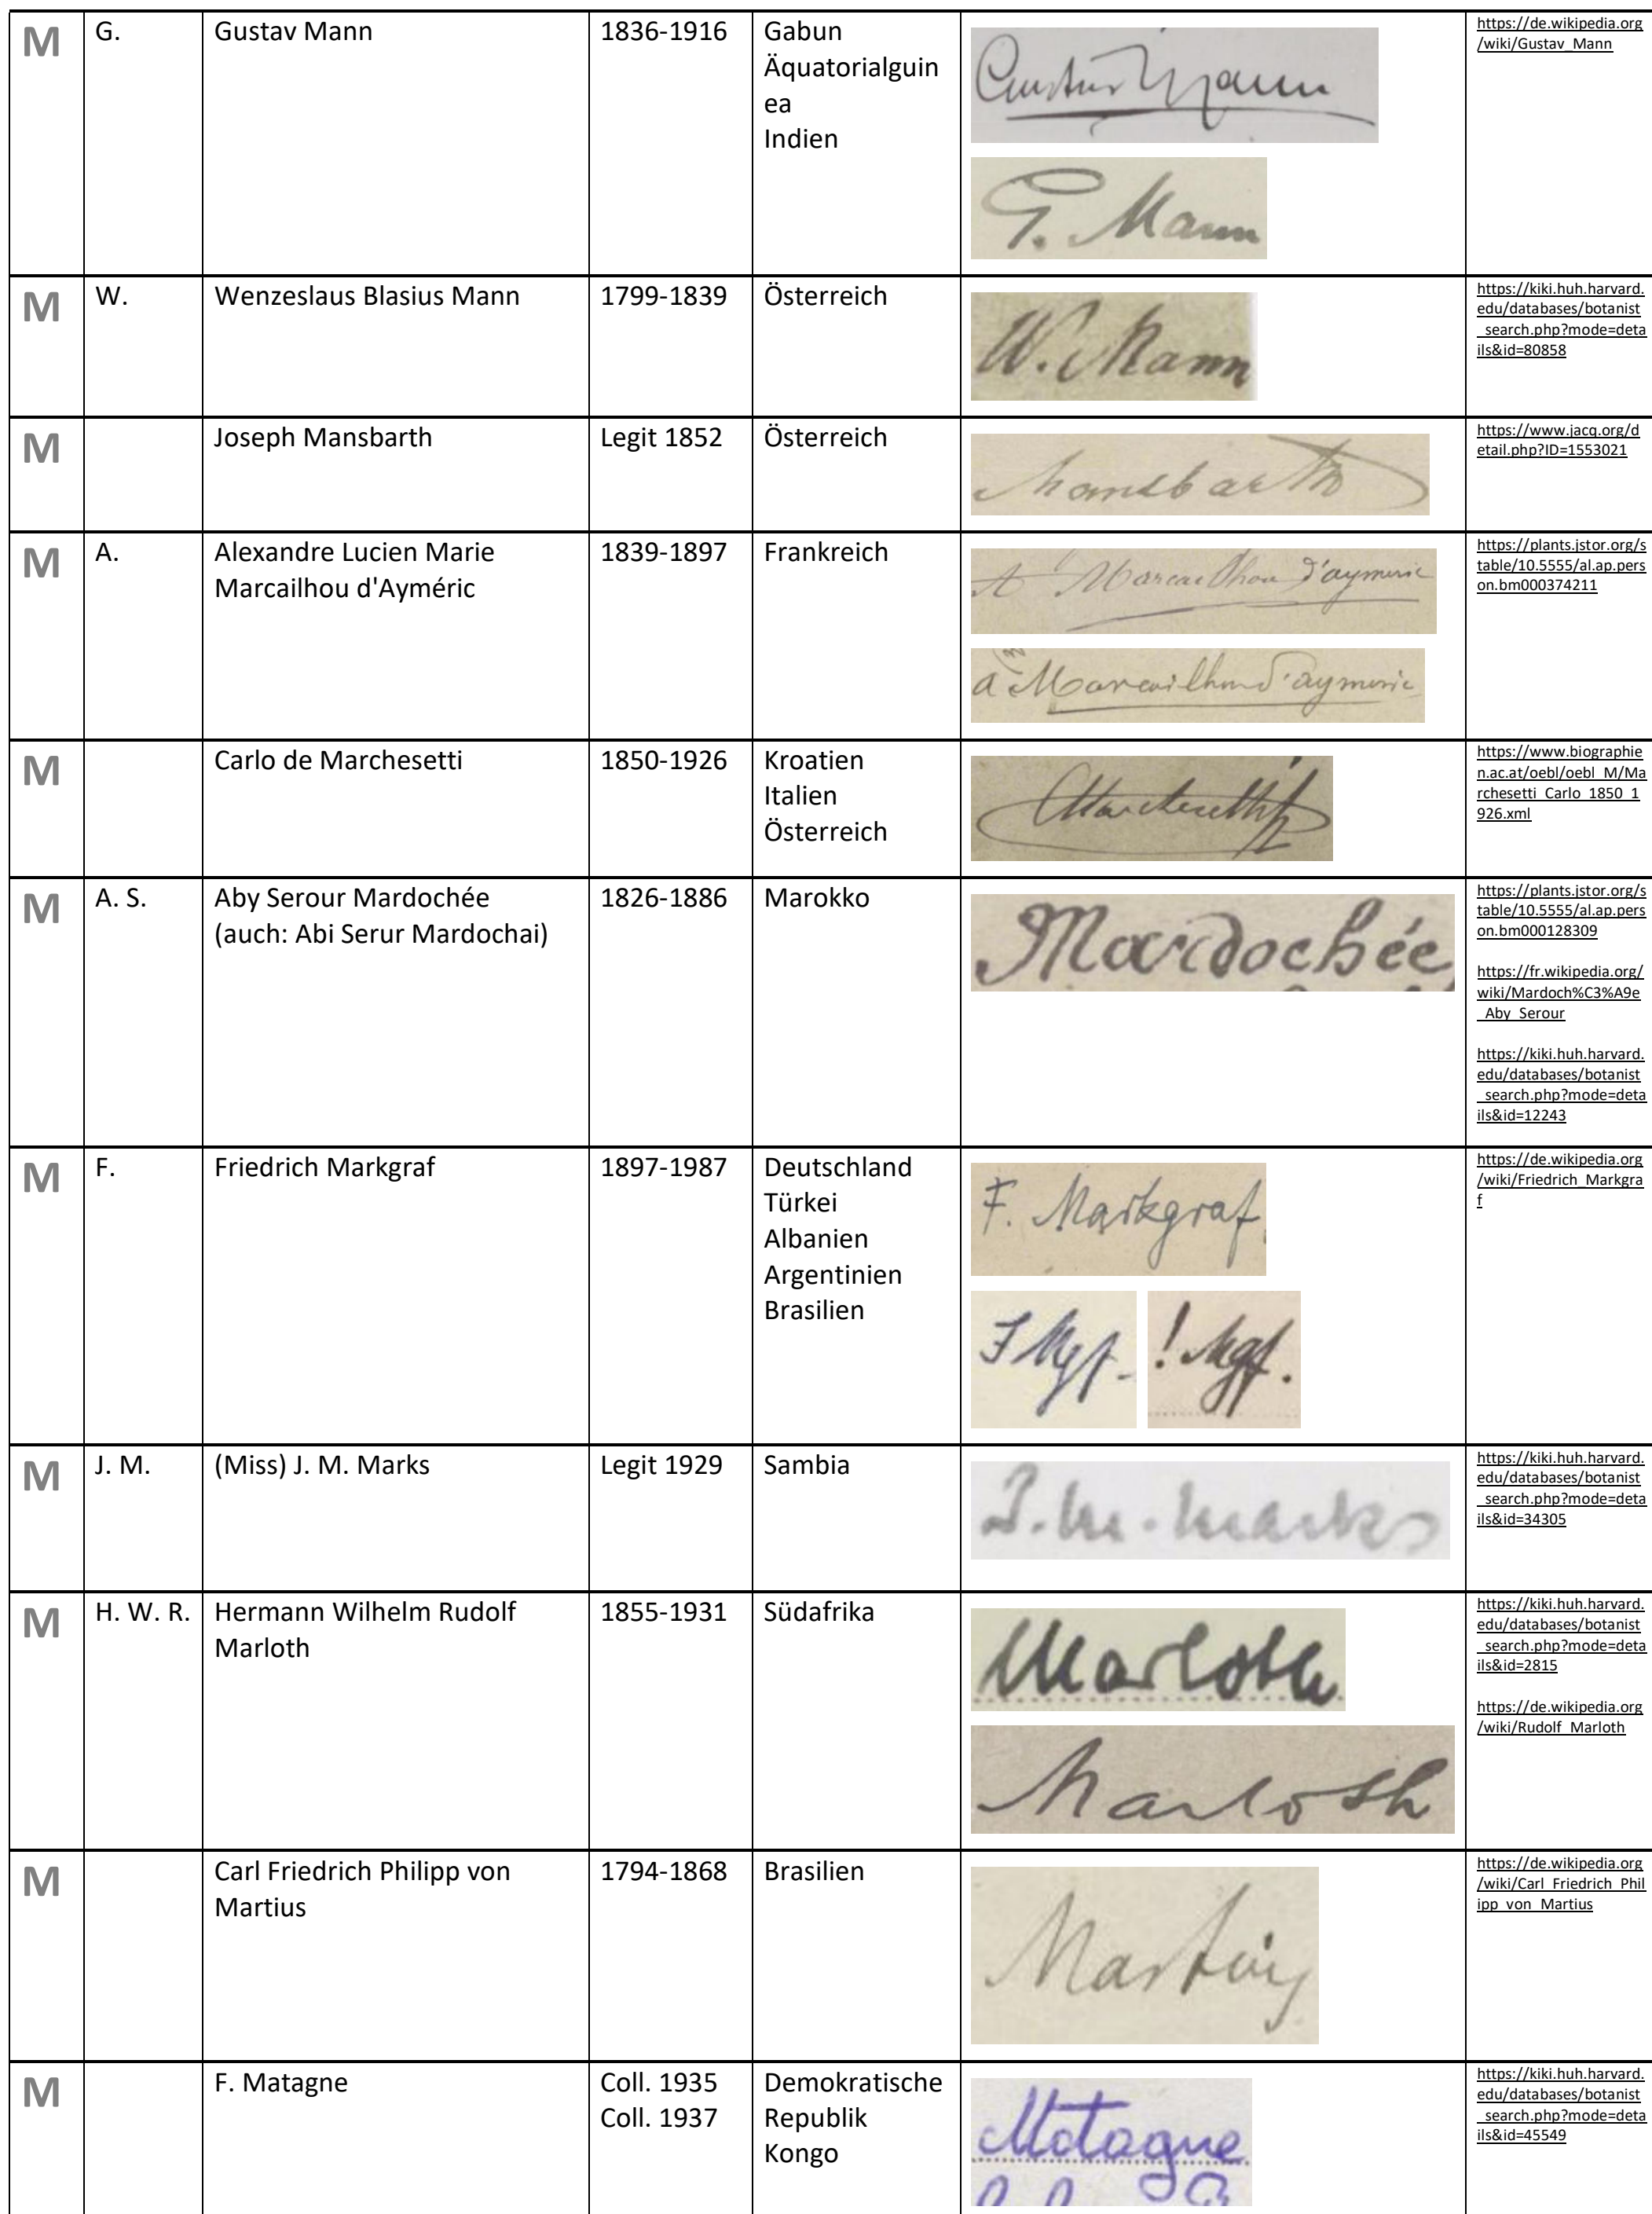 M
G.
Gustav Mann
1836-1916
Gabun
Äquatorialguin
ea
Indien
Gustav Mann
G. Mann
https://de.wikipedia.org
/wiki/Gustav_Mann
M
W.
Wenzeslaus Blasius Mann
1799-1839
Österreich
W. Mann
https://kiki.huh.harvard.
edu/databases/botanist
_search.php?mode=deta
ils&id=80858
M
Joseph Mansbarth
Legit 1852
Österreich
Mansbarth
https://www.jacq.org/d
etail.php?ID=1553021
M
A.
Alexandre Lucien Marie
Marcailhou d'Ayméric
1839-1897
Frankreich
A Marcailhou d'aymeric
a Marcailhou d'aymeric
https://plants.jstor.org/s
table/10.5555/al.ap.pers
on.bm000374211
M
Carlo de Marchesetti
1850-1926
Kroatien
Italien
Österreich
Marchesetti
https://www.biographie
n.ac.at/oebl/oebl_M/Ma
rchesetti_Carlo_1850_1
926.xml
M
A. S.
Aby Serour Mardochée
(auch: Abi Serur Mardochai)
1826-1886
Marokko
Mardochée
https://plants.jstor.org/s
table/10.5555/al.ap.pers
on.bm000128309
https://fr.wikipedia.org/
wiki/Mardoch%C3%A9e
_Aby_Serour
https://kiki.huh.harvard.
edu/databases/botanist
_search.php?mode=deta
ils&id=12243
M
F.
Friedrich Markgraf
1897-1987
Deutschland
Türkei
Albanien
Argentinien
Brasilien
F. Markgraf
F Mgf. ! Mgf.
https://de.wikipedia.org
/wiki/Friedrich_Markgra
f
M
J. M.
(Miss) J. M. Marks
Legit 1929
Sambia
J. M. Marks
https://kiki.huh.harvard.
edu/databases/botanist
_search.php?mode=deta
ils&id=34305
M
H. W. R.
Hermann Wilhelm Rudolf
Marloth
1855-1931
Südafrika
Marloth
Marloth
https://kiki.huh.harvard.
edu/databases/botanist
_search.php?mode=deta
ils&id=2815
https://de.wikipedia.org
/wiki/Rudolf_Marloth
M
Carl Friedrich Philipp von
Martius
1794-1868
Brasilien
Martius
https://de.wikipedia.org
/wiki/Carl_Friedrich_Phil
ipp_von_Martius
M
F. Matagne
Coll. 1935
Coll. 1937
Demokratische
Republik
Kongo
Matagne
https://kiki.huh.harvard.
edu/databases/botanist
_search.php?mode=deta
ils&id=45549